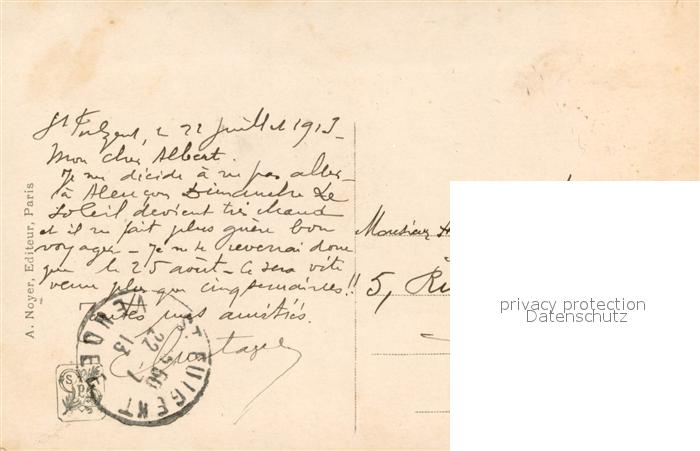 St Fulgent, le 22 Juillet 1913 -
Mon cher Albert.
Je me décide à ne pas aller
à Alençon Dimanche Le
Soleil devient très chaud
et il ne fait plus guère bon
voyager - Je ne te reverrai donc
que le 25 août - Ce sera vite
venu plus que cinq semaines !!
Toutes mes amitiés.
A. Noyer, Editeur, Paris
ST FULGENT
22 - 7
13
VENDEE
Monsieur
5, Ru
privacy protection
Datenschutz